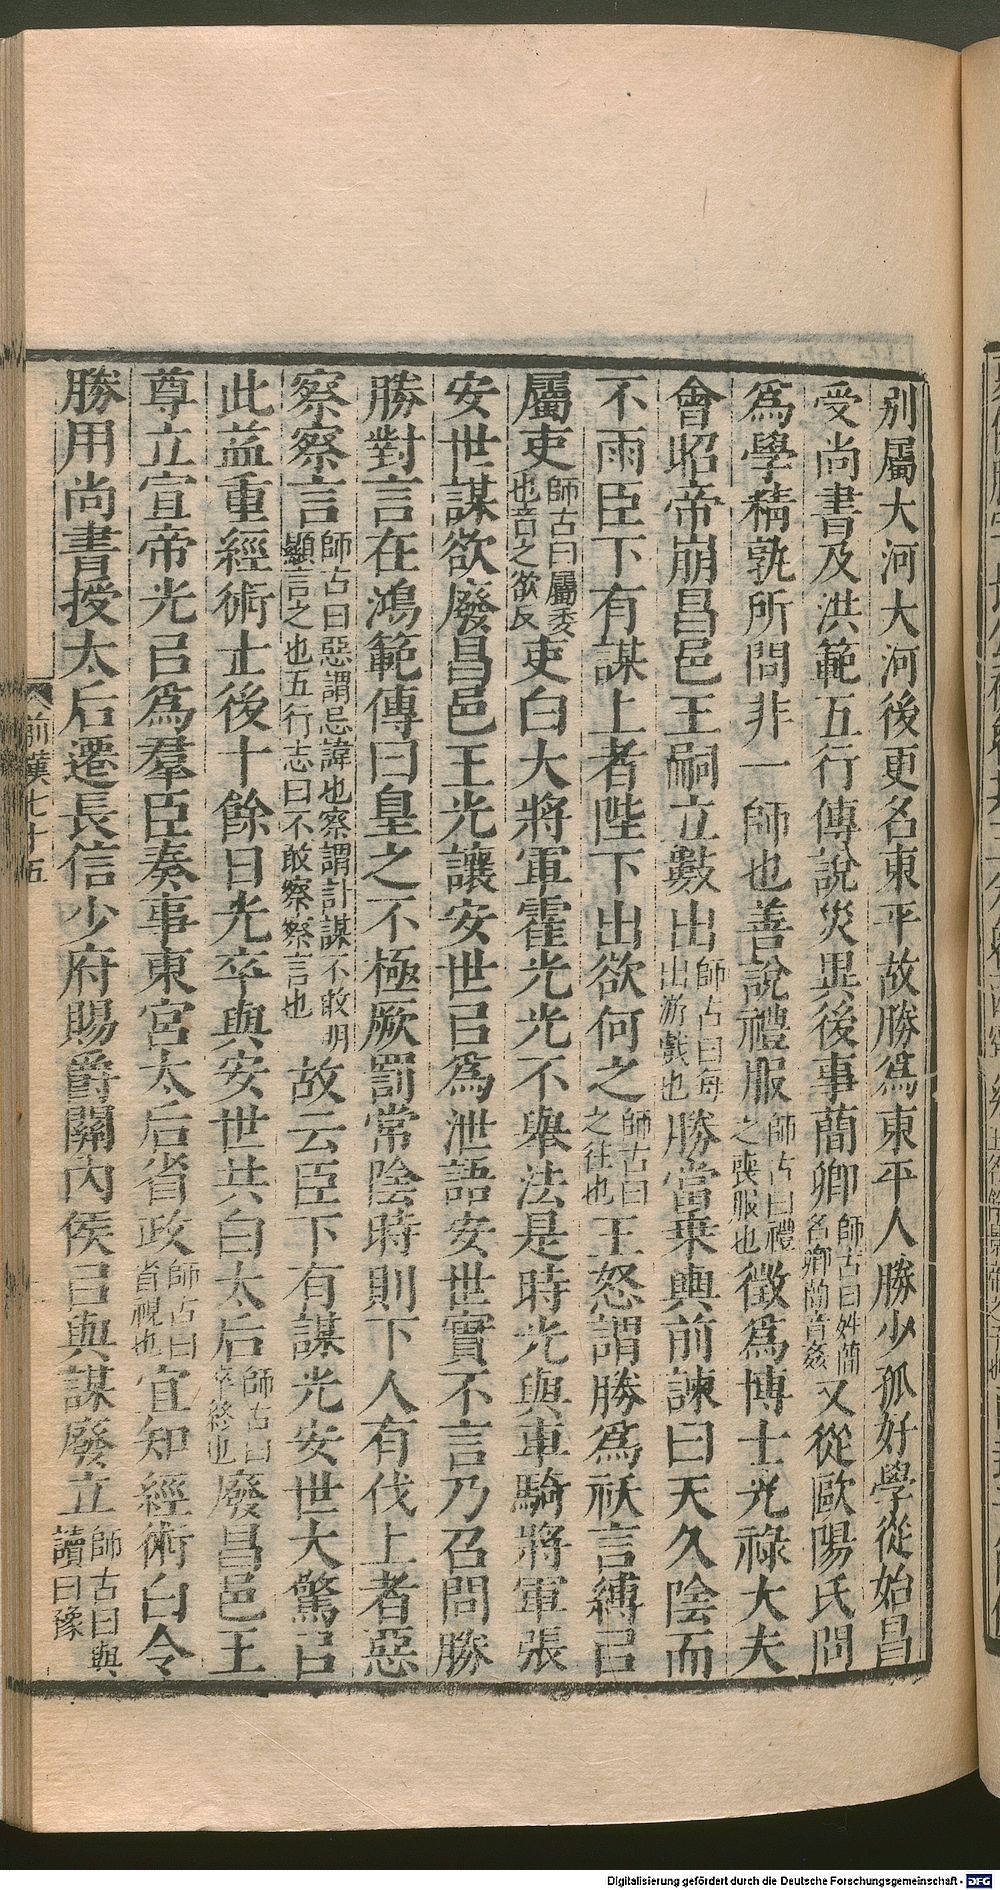 別屬大河大河後更名東平故勝為東平人勝少孤好學從始昌
受尚書及洪範五行傳說災異後事蕳卿師古曰姓蕳名卿蕳音姦又從歐陽氏問
為學精孰所問非一師也善說禮服師古曰禮之喪服也徵為博士光祿大夫
會昭帝崩昌邑王嗣立數出師古曰每出游戲也勝當乗輿前諫曰天久陰而
不雨臣下有謀上者陛下出欲何之師古曰之往也王怒謂勝為祅言縛㠯
屬吏師古曰屬委也音之欲反吏白大將軍霍光光不舉法是時光與車騎將軍張
安世謀欲廢昌邑王光讓安世㠯為泄語安世實不言乃召問勝
勝對言在鴻範傳曰皇之不極厥罰常陰時則下人有伐上者惡
察察言師古曰惡謂忌諱也察謂計謀不敢明顯言之也五行志曰不敢察察言也故云臣下有謀光安世大驚㠯
此益重經術士後十餘日光卒與安世共白太后師古曰卒終也廢昌邑王
尊立宣帝光㠯為羣臣奏事東宮太后省政師古曰省視也宜知經術白令
勝用尚書授太后遷長信少府賜爵關內侯㠯與謀廢立師古曰與讀曰豫
前漢七十五
Digitalisierung gefördert durch die Deutsche Forschungsgemeinschaft - DFG